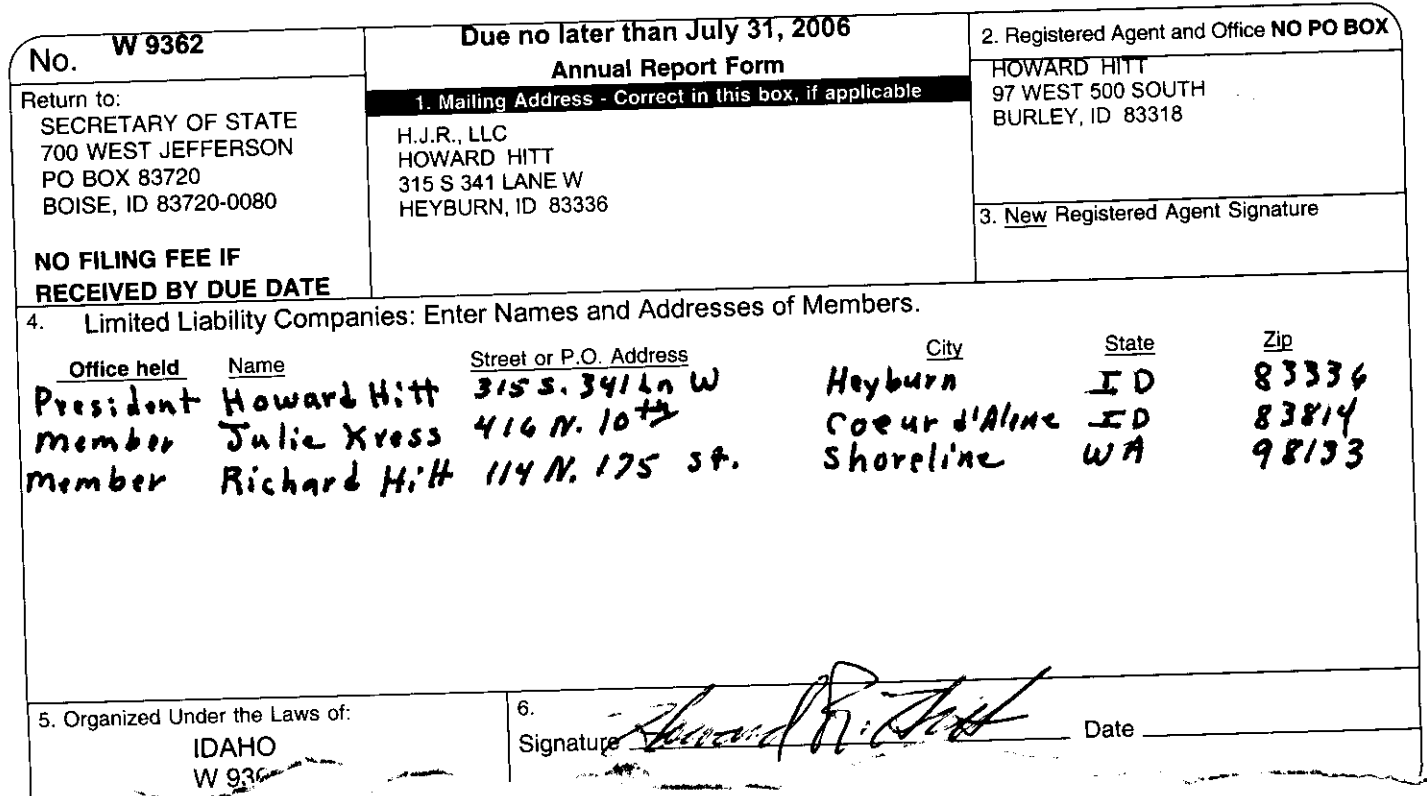 No. W 9362
Return to:
SECRETARY OF STATE
700 WEST JEFFERSON
PO BOX 83720
BOISE, ID 83720-0080
NO FILING FEE IF
RECEIVED BY DUE DATE
Due no later than July 31, 2006
Annual Report Form
1. Mailing Address - Correct in this box, if applicable
H.J.R., LLC
HOWARD HITT
315 S 341 LANE W
HEYBURN, ID 83336
2. Registered Agent and Office NO PO BOX
HOWARD HITT
97 WEST 500 SOUTH
BURLEY, ID 83318
3. New Registered Agent Signature
4. Limited Liability Companies: Enter Names and Addresses of Members.
Office held Name Street or P.O. Address City State Zip
President Howard Hitt 315 S. 341 Ln W Heyburn ID 83336
Member Julie Kress 416 N. 10th Coeur d'Alene ID 83814
Member Richard Hitt 114 N. 175 St. Shoreline WA 98133
5. Organized Under the Laws of:
IDAHO
W 936
6.
Signature Howard R. Hitt Date